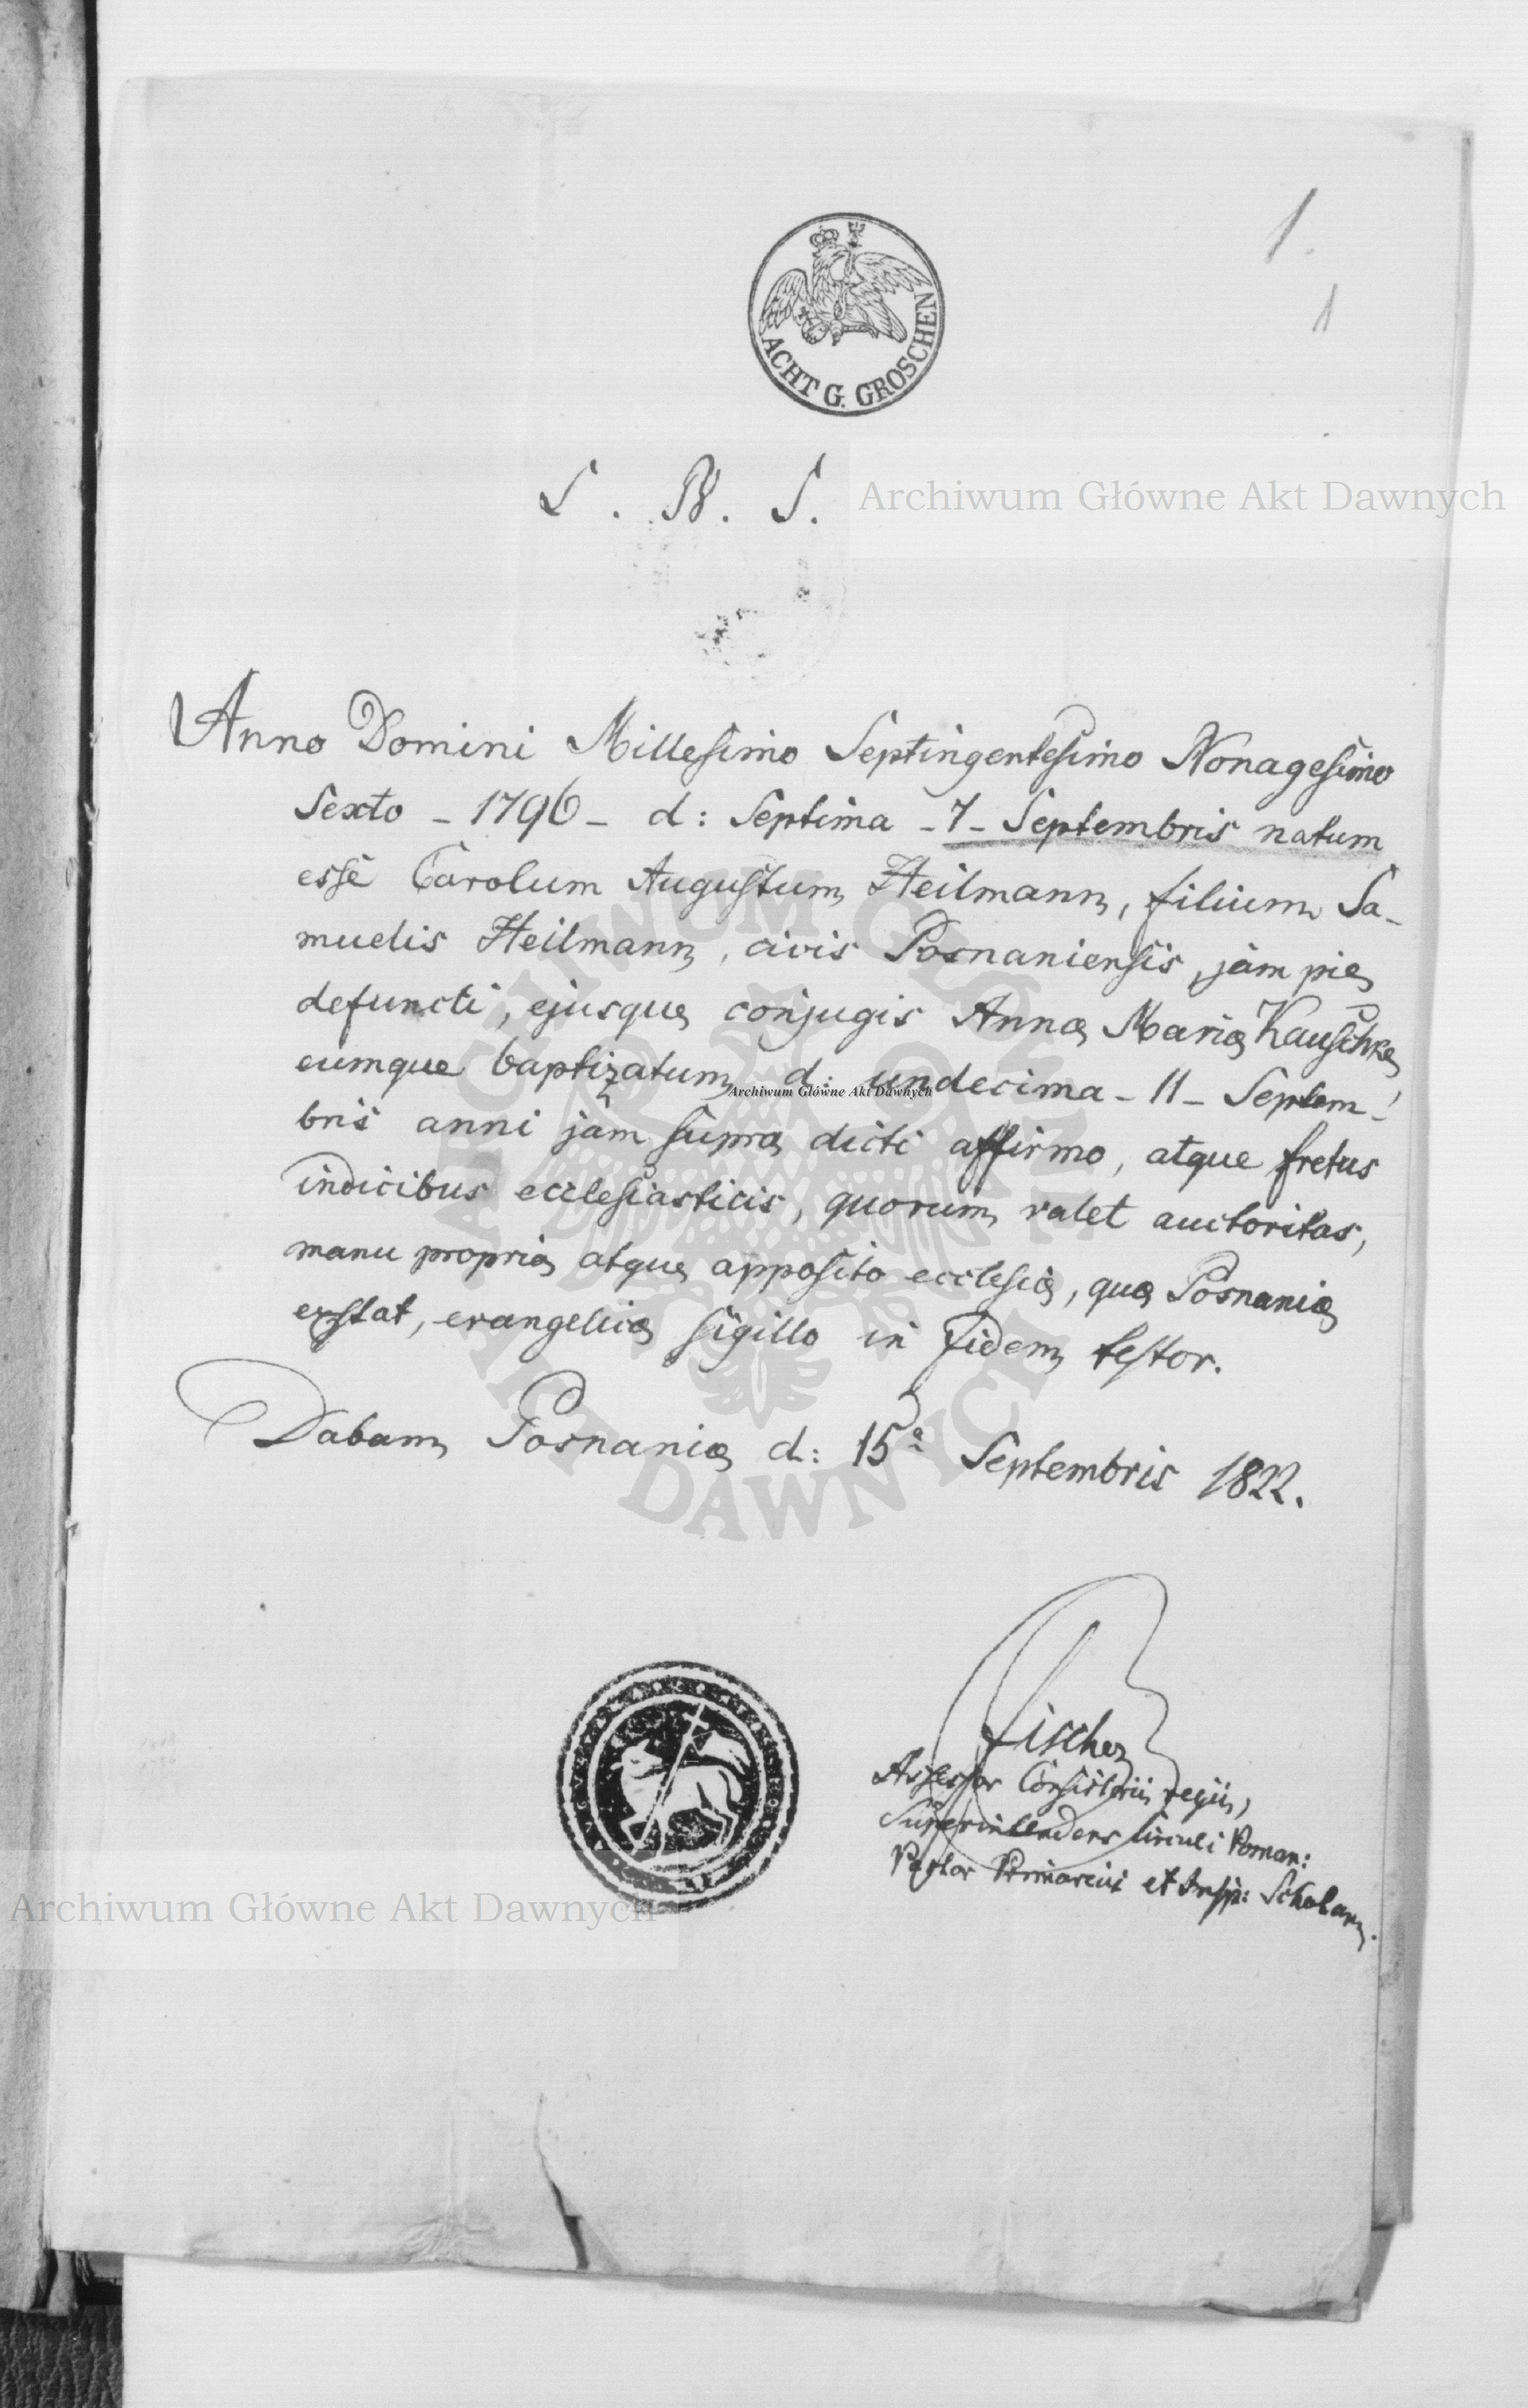 1.
1
ACHT G. GROSCHEN
S. B. S.
Archiwum Główne Akt Dawnych
Anno Domini Millesimo Septingentesimo Nonagesimo
Sexto - 1796 - d: Septima - 7 - Septembris natum
esse Carolum Augustum Heilmann, filium Sa-
muelis Heilmann, civis Posnaniensis, jam pie
defuncti, ejusque conjugis Annæ Mariæ Kauschke
eumque baptizatum d: undecima - 11 - Septem-
Archiwum Główne Akt Dawnych
bris anni jam supra dicti affirmo, atque fretus
indicibus ecclesiasticis, quorum valet auctoritas,
manu propria atque apposito ecclesiæ, quæ Posnaniæ
exstat, evangelicæ sigillo in fidem testor.
Dabam Posnaniæ d: 15ª Septembris 1822.
ARCHIWUM GŁÓWNE AKT DAWNYCH
Fischer
Assessor Consistorii regii,
Superintendens Circuli Posnan:
Pastor Primarius et Insp: Scholarum.
Archiwum Główne Akt Dawnych